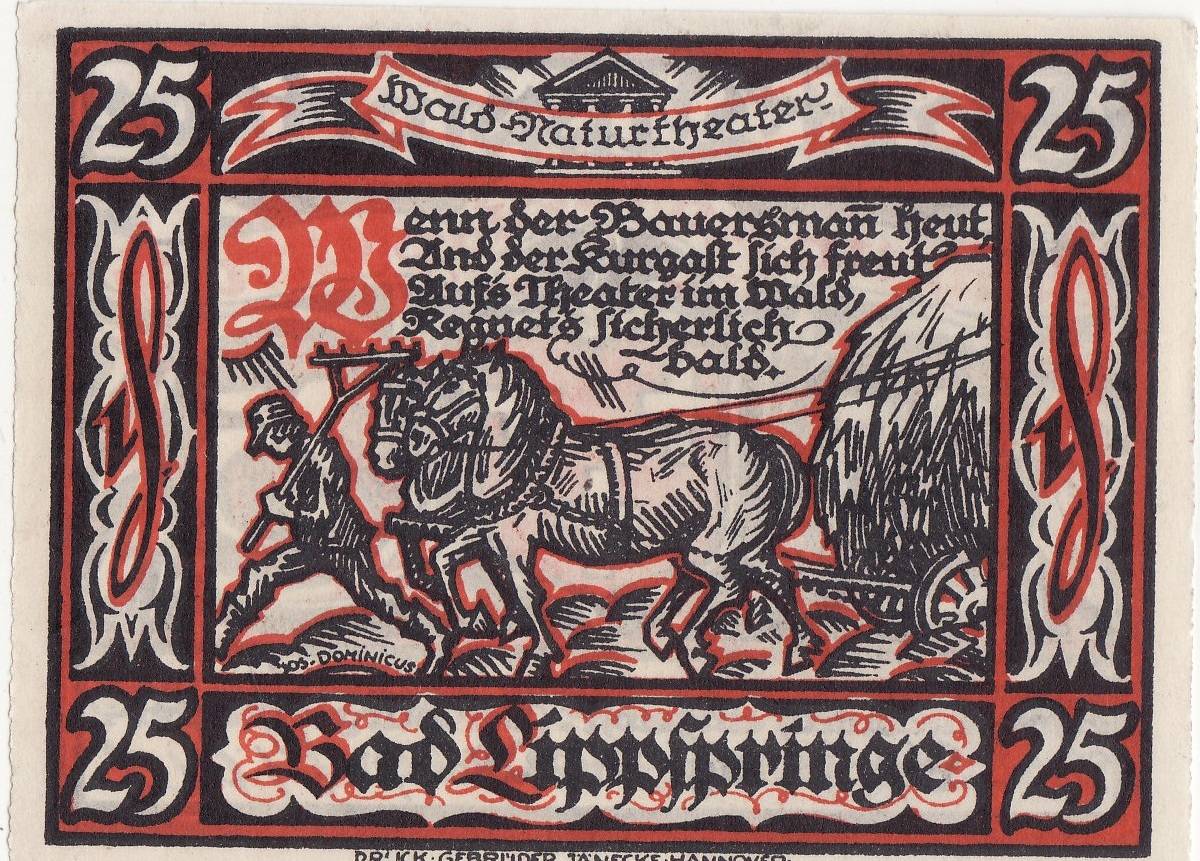 25
Wald-Naturtheater.
25
Wenn der Bauersman̄ heut,
Und der Kurgast sich freut
Aufs Theater im Wald,
Regnet's sicherlich
bald.
JOS. DOMINICUS
25
Bad Lippspringe
25
DRUCK: GEBRÜDER JÄNECKE, HANNOVER.